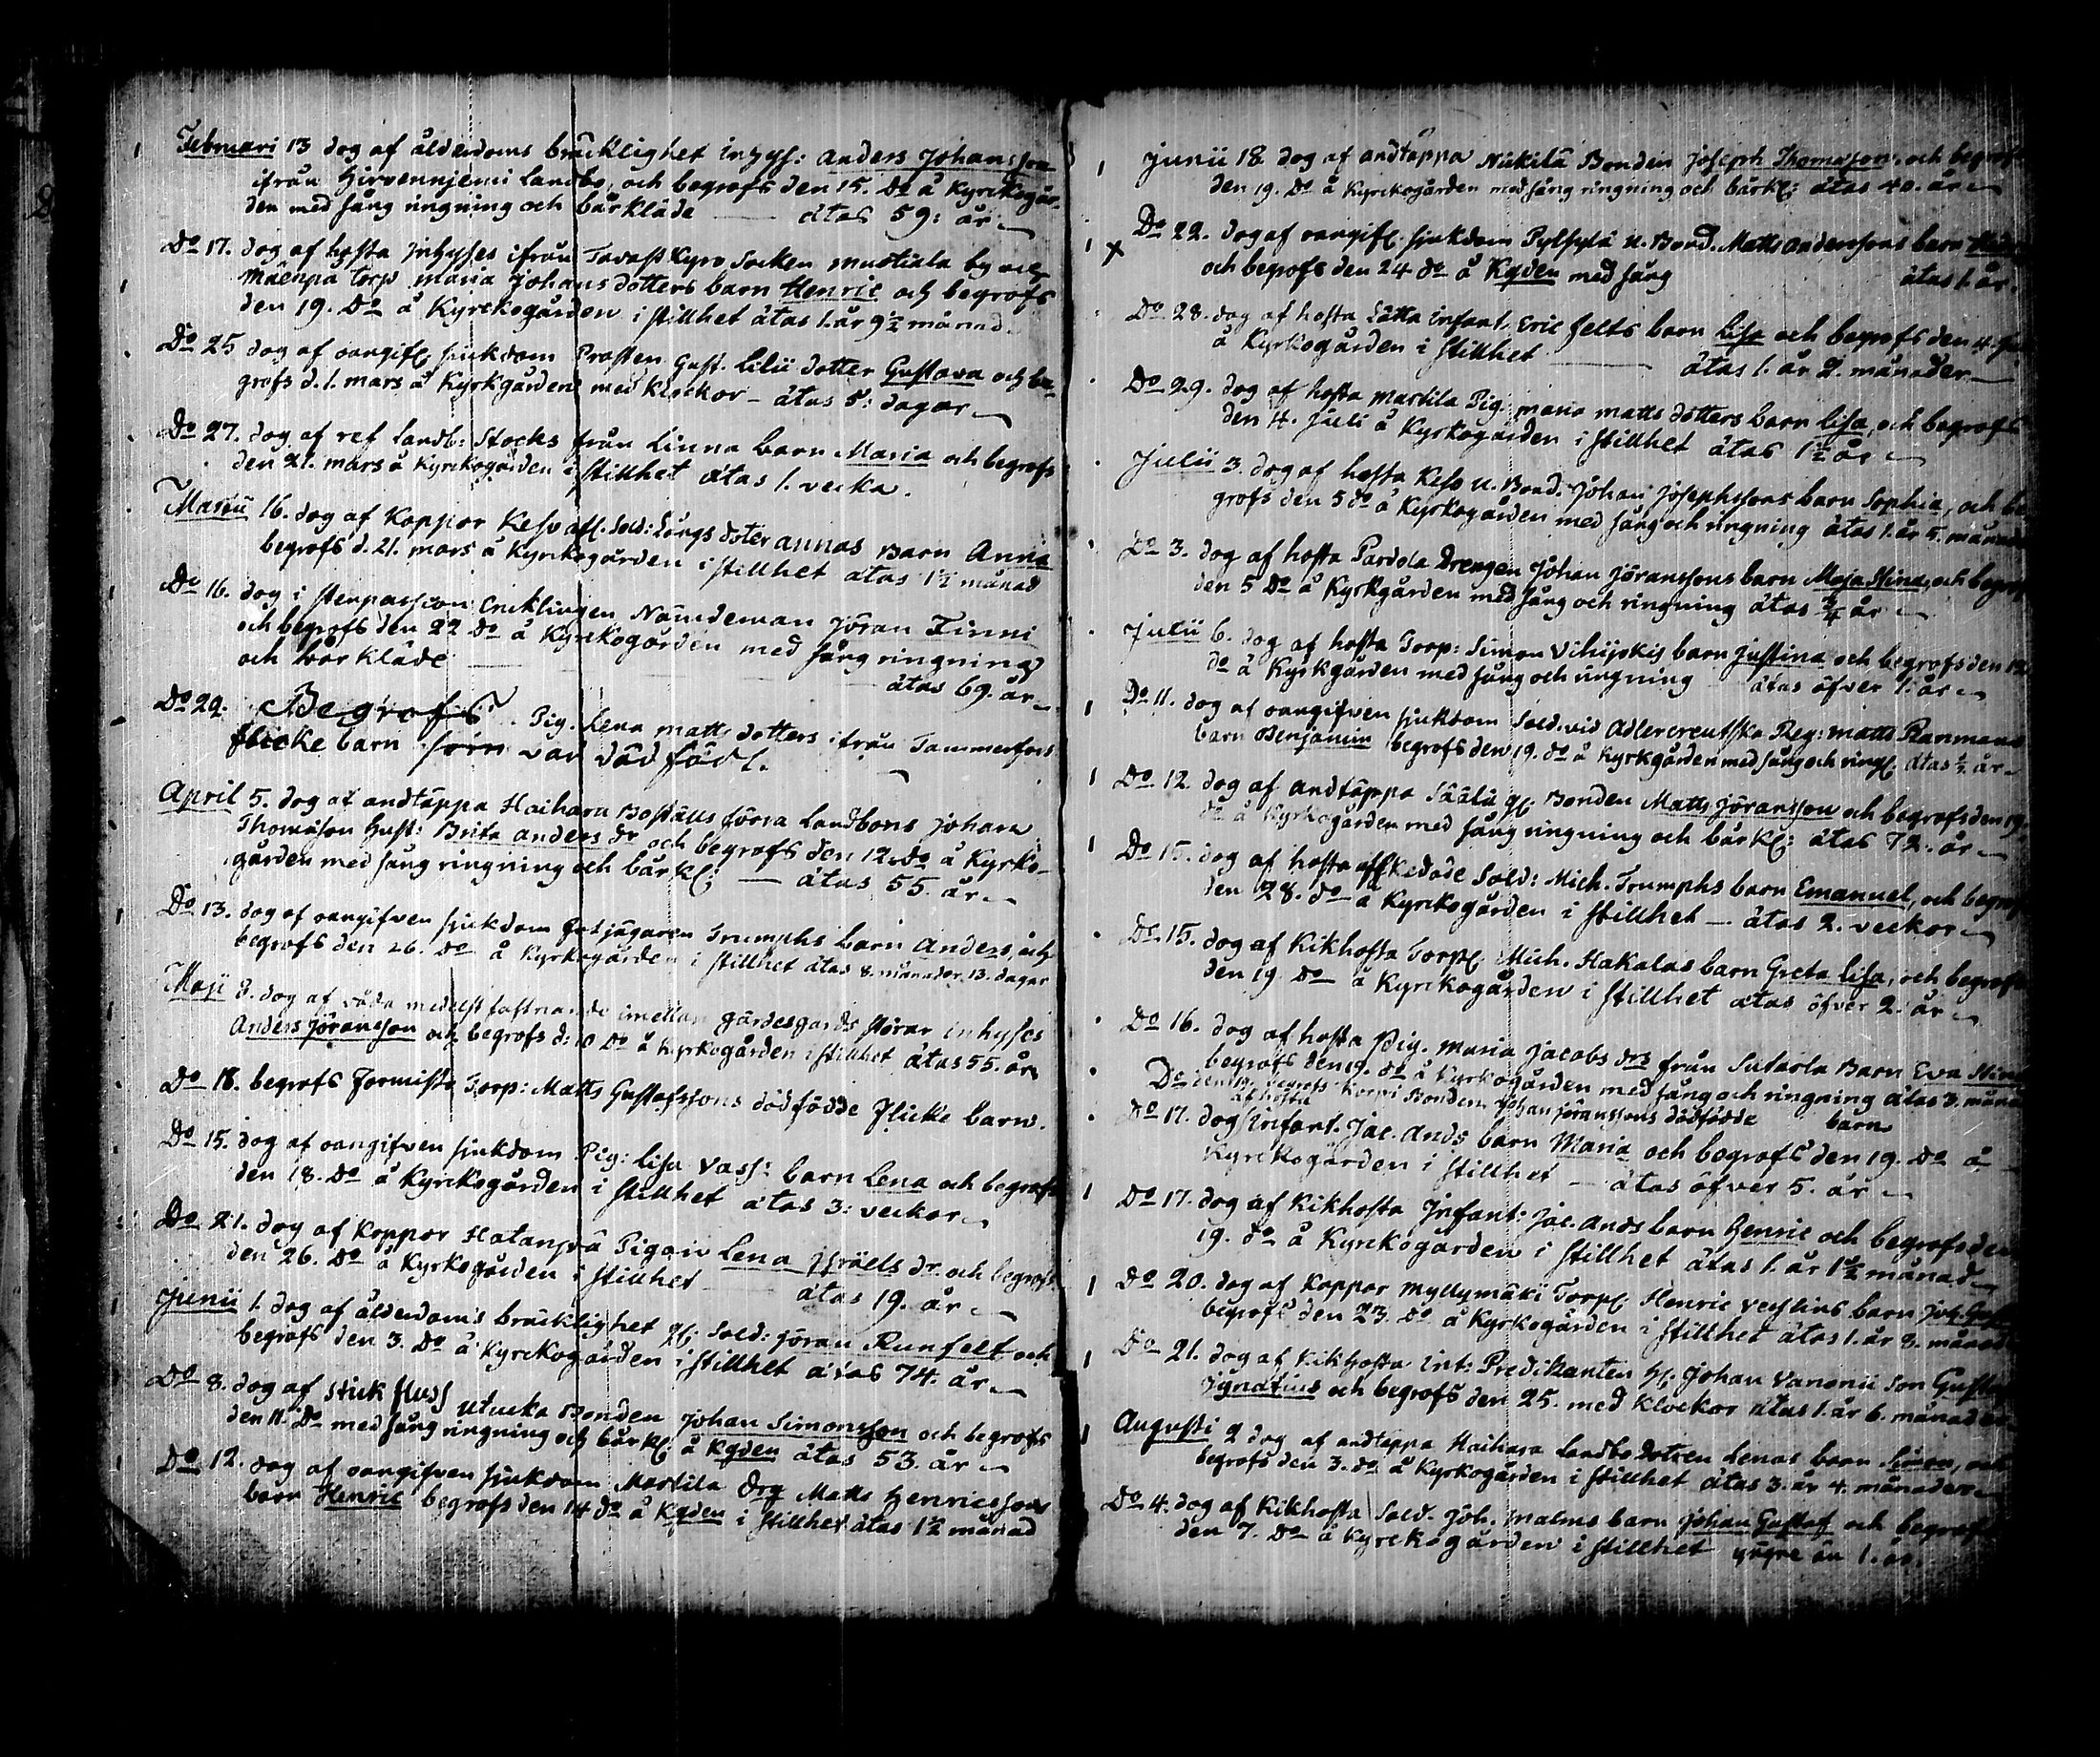 Februari 13 dog af ålderdoms bräcklighet inhyss: Anders Johansson
ifrån Hirvennjemi Landbo, och begrofs den 15. Do å Kyrckogår-
den med sång ringning och bårkläde — åtas 59: år
Do 17. dog af hosta Inhyses ifrån Tavast Kyro Socken mustiala by och
Mäenpä torp maria Johans dotters barn Henric och begrofs
den 19. Do å Kyrckogården i stillhet åtas 1. år 9½ månad.
Do 25 dog af oangifl. sjukdom Prosten Gust. Lilii dotter Gustava och be-
grofs d. 1. mars å Kyrkgården med Klockor - åtas 5: dagar
Do 27. dog af ref Landb: Stocks från Linna barn Maria och begrofs
den 21. mars å Kyrckogården i stillhet åtas 1. vecka.
Martii 16. dog af Koppor Keso afl. Sold: Långs doter annas Barn Anna
begrofs d. 21. mars å Kyrckogården i stillhet åtas 1½ månad
Do 16. dog i stenpassion Nämdeman Jöran Finni
och begrofs den 22 Do å Kyrckogården med sång ringning
och bårkläde — åtas 69. år
Do 29. Begrofs Pig. Lena matts dotters ifrån Tammerfors
flicke barn som var dödfödt.
April 5. dog af andtäppa Haihara Boställs förra Landbons Johan
Thomæson Hust: Brita anders dr och begrofs den 12. Do å Kyrko-
gården med sång ringning och bårkl: — åtas 55. år
Do 13. dog af oangifven sjukdom Fotjägaren Trumphs barn Anders, och
begrofs den 26. Do å Kyrkogården i stillhet åtas 8. månader 13. dagar
Maji 8. dog af våda medelst fastnande imellan gärdesgårds störar inhyses
Anders Jöransson och begrofs d: 10 Do å Kyrkogården i stillhet åtas 55. år
Do 18. begrofs Torp: Matts Gustafssons dödfödde flicke barn.
Do 15. dog af oangifven sjukdom Pig: Lisa Vass: barn Lena och begrofs
den 18. Do å Kyrckogården i stillhet åtas 3: veckor
Do 21. dog af Koppor Hatanpä Pigan Lena Israels dr. och begrofs
den 26. Do å Kyrkogården i stillhet — åtas 19. år
Junii 1. dog af ålderdoms bräcklighet gl: Sold: Jöran Runfelt och
begrofs den 3. Do å Kyrckogården i stillhet åtas 74. år
Do 8. dog af stick fluss Utucka Bonden Johan Simonsson och begrofs
den 11. Do med sång ringning och bårkl: å Kgden åtas 53. år
Do 12. dog af oangifven sjukdom Martila Drg Matts Henricssons
barn Henric begrofs den 14 do å Kgden i stillhet åtas 1½ månad
Junii 18 dog af andtäppa Nickilä Bonden Joseph Thomasson, och begrofs
den 19. Do å Kyrckogården med sång ringning och bårkl: åtas 40. år
Do 22. dog af oangifl. sjukdom Pylsylä u. Bond. Matts Anderssons barn
och begrofs den 24 do å Kgden med sång åtas 1. år.
Do 28. dog af hosta Lätta infant. Eric Felts barn Lisa och begrofs den 4.
å Kyrkogården i stillhet — åtas 1. år 2. månader
Do 29. dog af hosta Martila Pig: maria matts dotters barn Lisa, och begrofs
den 4. Juli å Kyrkogården i stillhet åtas 1½ år
Julii 3. dog af hosta Keso u. Bond. Johan Josephssons barn Sophia, och be-
grofs den 5 do å Kyrkogården med sång och ringning åtas 1. år 5. månader
Do 3. dog af hosta Pardola Drengen Johan Jöranssons barn Maja Stina, och begrofs
den 5 Do å Kyrkgården med sång och ringning åtas ¾ år
Julii 6. dog af hosta Torp: Simon barn Justina och begrofs den 12
do å Kyrkgården med sång och ringning åtas öfver 1. år
Do 11. dog af oangifven sjukdom Sold. vid Adlercreutzska Reg: matts Ranmans
barn Benjamin begrofs den 19. do å Kyrkgården med sång och ringl. åtas ½. år
Do 12. dog af andtäppa Säälä gl: Bonden Matts Jöransson och begrofs den 19.
do å Kyrkogården med sång ringning och bårkl: åtas 72. år
Do 15. dog af hosta afskedade Sold: Mich. Trumphs barn Emanuel, och begrofs
den 28. do å Kyrckogården i stillhet — åtas 2. veckor
Do. 15. dog af Kikhosta Torpl. Mich. Hakalas barn Greta Lisa, och begrofs
den 19. Do å Kyrckogården i stillhet åtas öfver 2. år
Do 16. dog af hosta Pig. Maria Jacobs drs från Sutarla Barn Eva Stina
begrofs den 19. do å Kyrkogården med sång och ringning åtas 3. månad
Do den 19. begrofs Korpi Bonden Johan Jöranssons dödfödde barn
Do 17. dog af hosta Infant. Jac. Ands barn Maria och begrofs den 19. Do å
Kyrckogården i stillhet — åtas öfver 5. år
Do 17. dog af Kikhosta Infant: Jac. Ands barn Henric och begrofs den
19. do å Kyrckogården i stillhet åtas 1. år 1½ månad
Do 20. dog af Koppor Myllymäki Torpl. Henric barn
begrofs den 23. Do å Kyrkogården i stillhet åtas 1. år 8. månad
Do 21. dog af Kikhosta Int: Predikanten Hl: Johan Vanonii Son Gustaf
Ignatius och begrofs den 25. med Klockor åtas 1. år 6. månader
Augusti 2 dog af andtäppa Haihara Landbo dotren Lenas barn Simon, och
begrofs den 3. do å Kyrkogården i stillhet åtas 3. år 4. månader
Do 4. dog af Kikhosta Sold. Joh. Malms barn Johan Gustaf och begrofs
den 7. Do å Kyrckogården i stillhet yngre än 1. år.